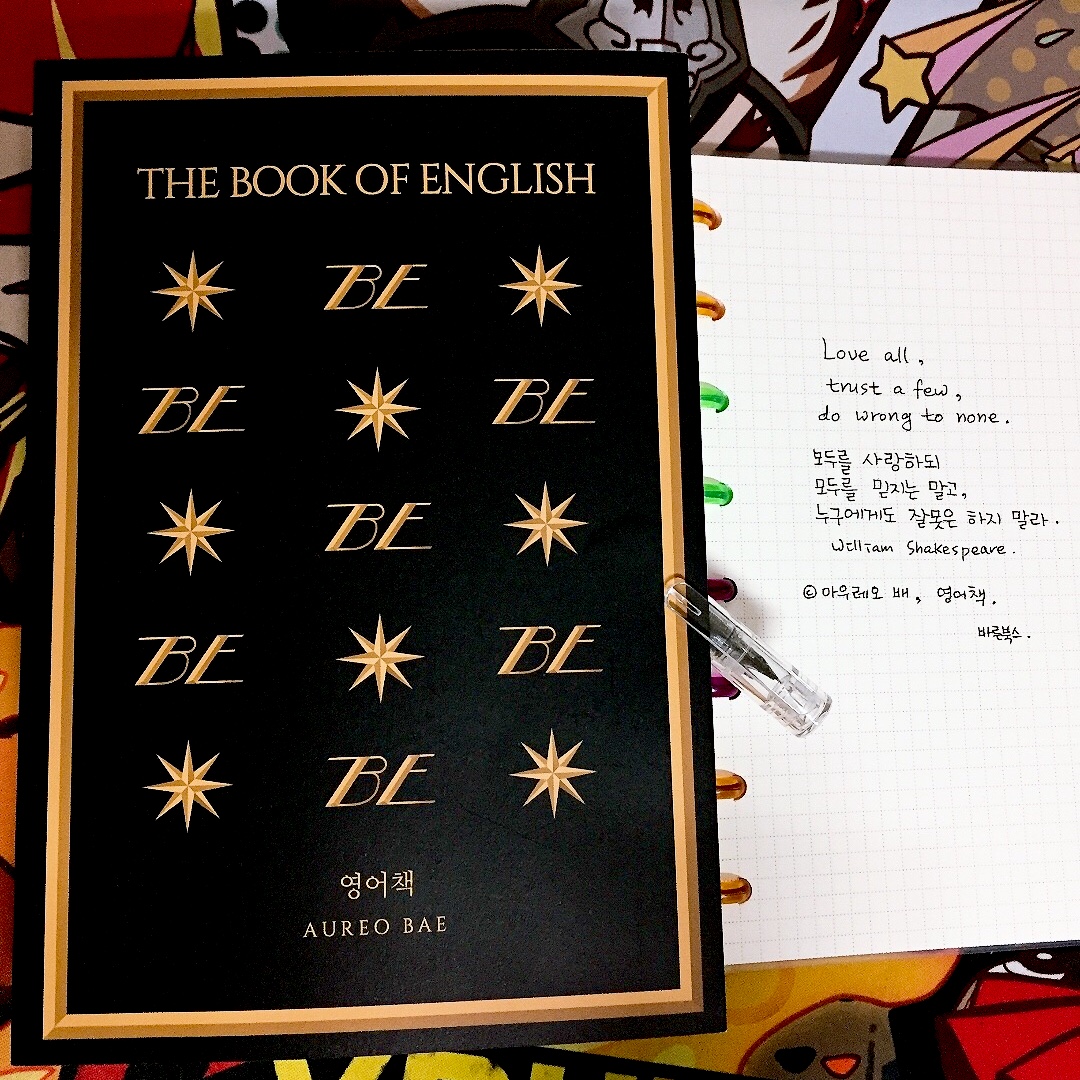 THE BOOK OF ENGLISH
BE
BE BE
BE
BE BE
BE
영어책
AUREO BAE
Love all,
trust a few,
do wrong to none.
모두를 사랑하되
모두를 믿지는 말고,
누구에게도 잘못은 하지 말라.
William Shakespeare.
© 마우레오 배, 영어책.
바른북스.